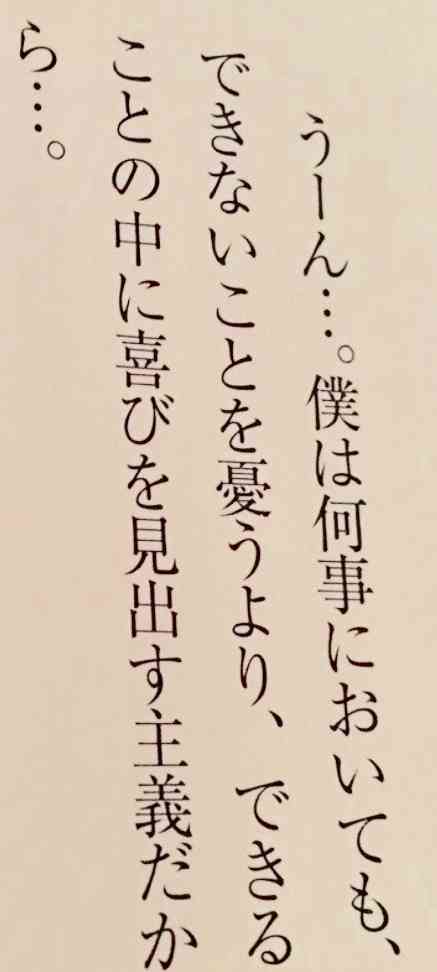 うーん…。僕は何事においても、
できないことを憂うより、できる
ことの中に喜びを見出す主義だか
ら…。